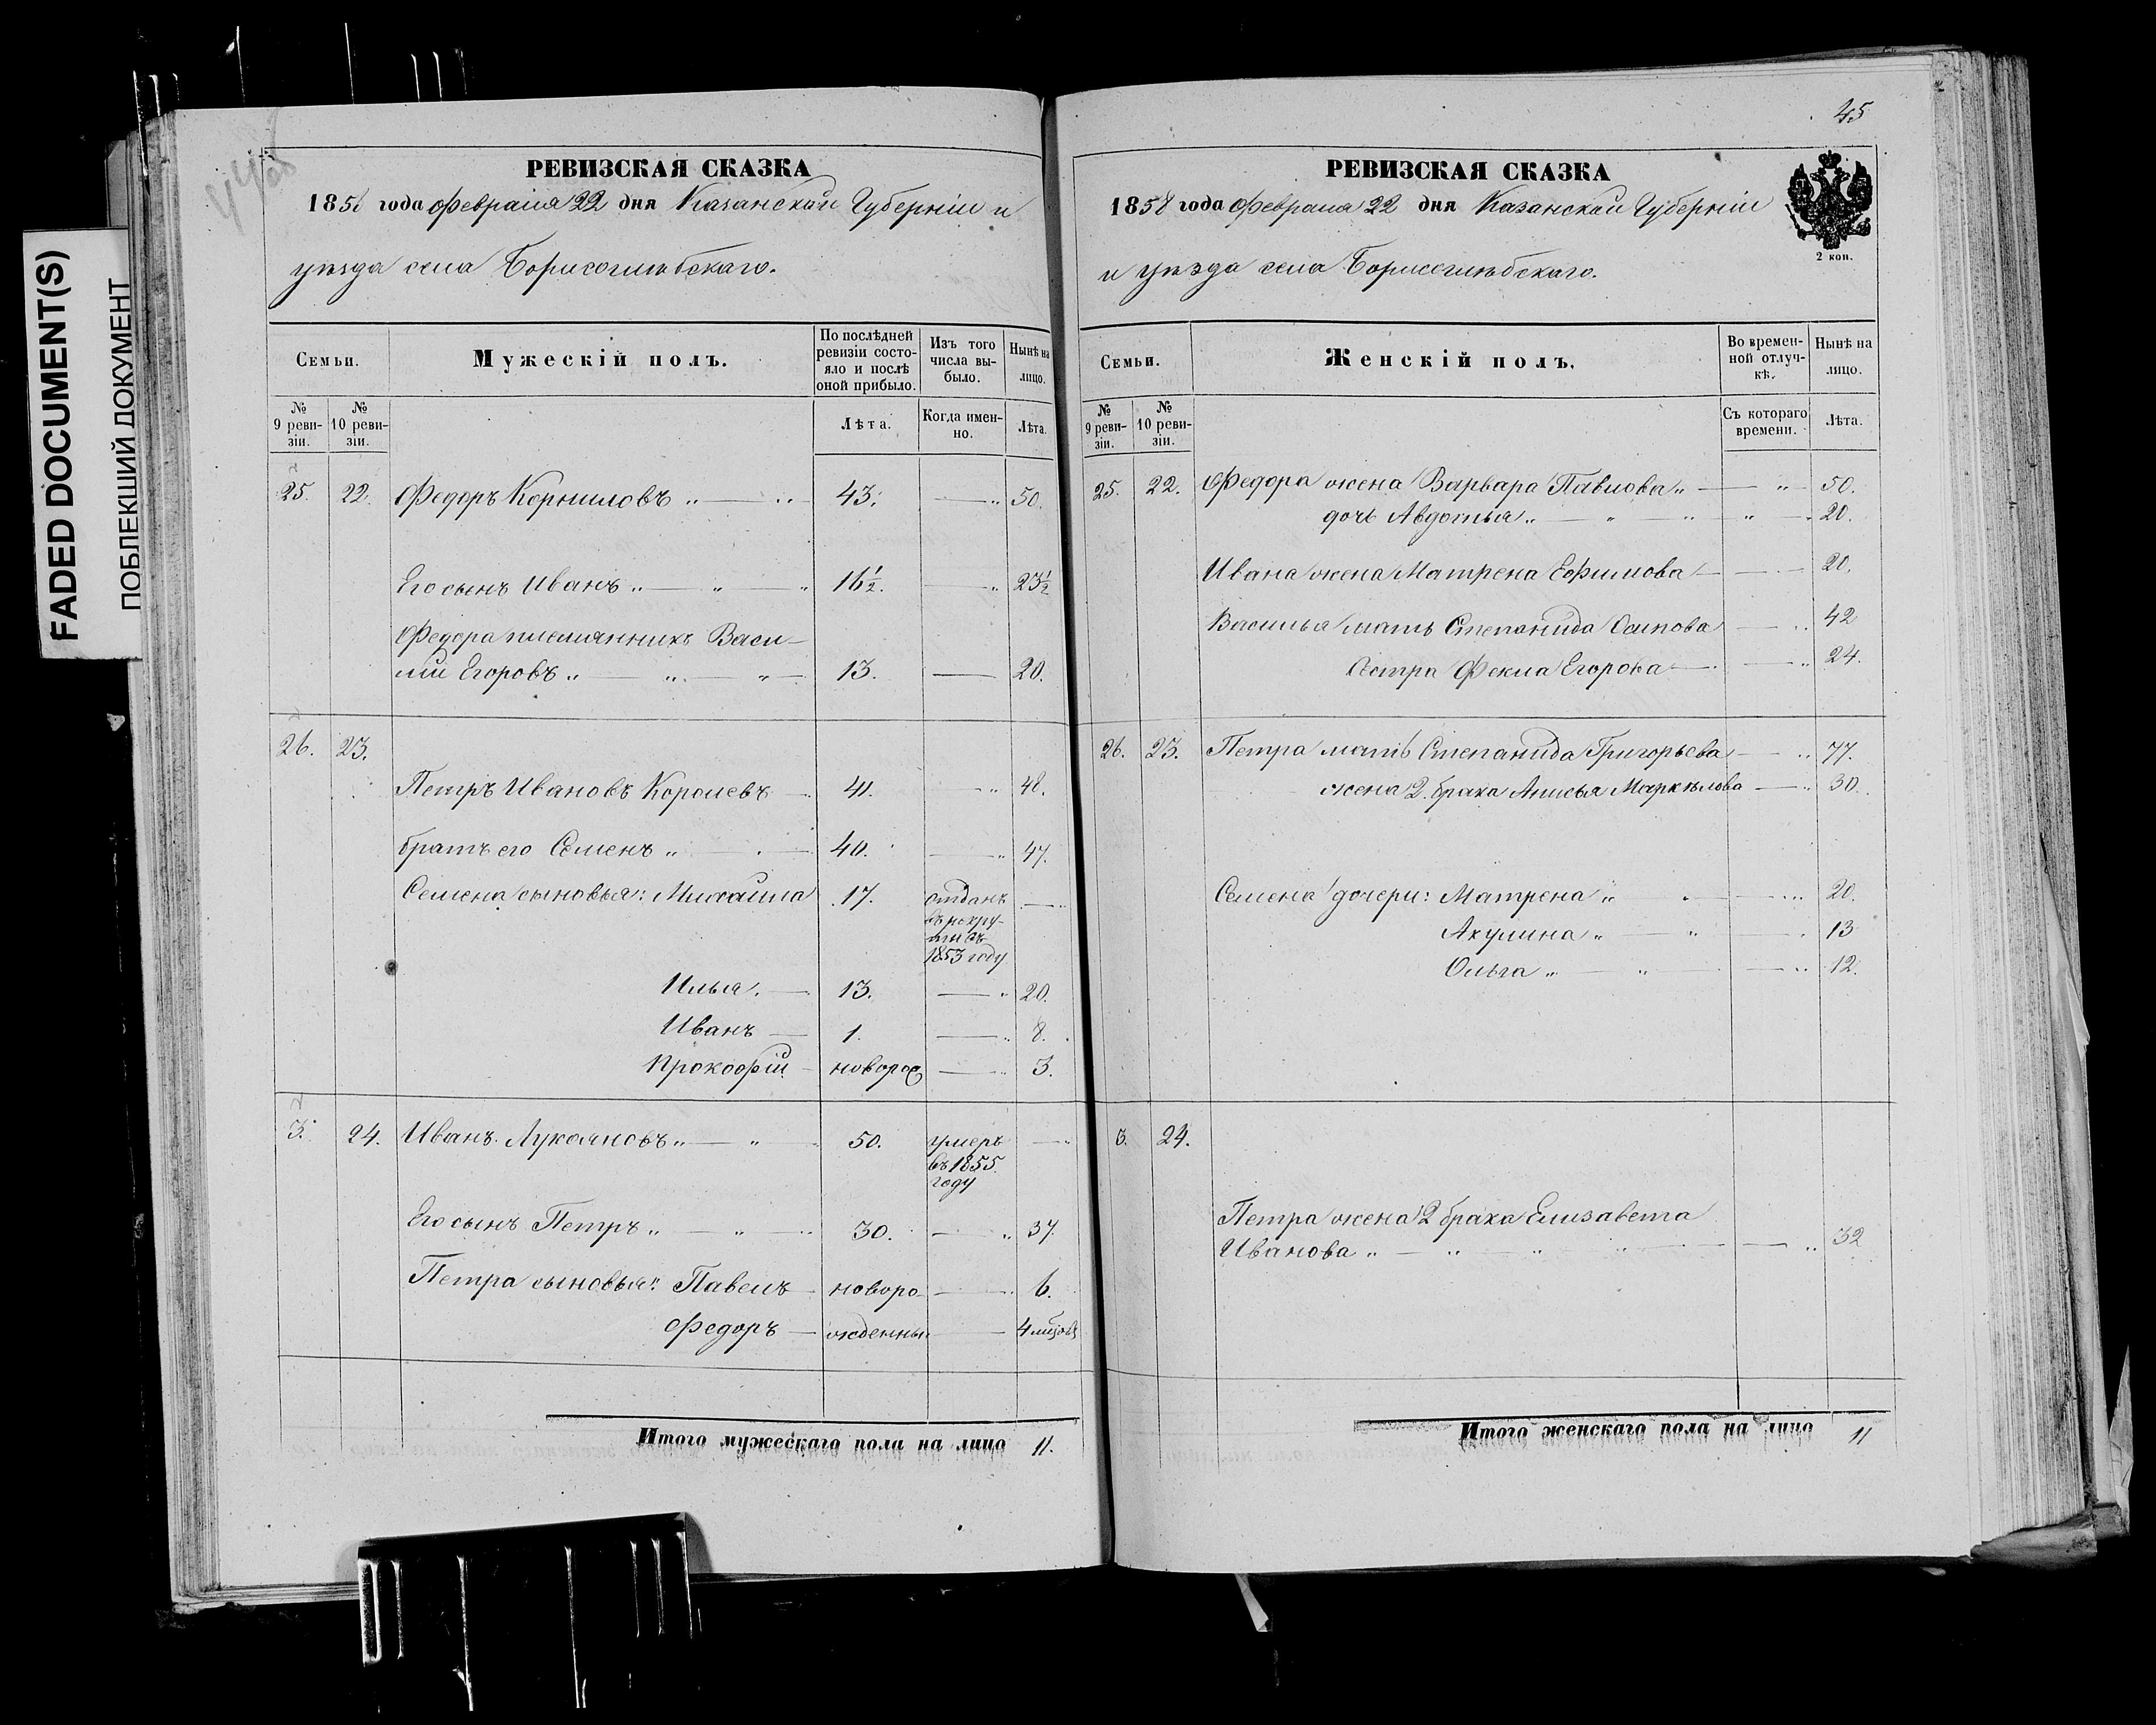 FADED DOCUMENT(S)
ПОБЛЕКШИЙ ДОКУМЕНТ
РЕВИЗСКАЯ СКАЗКА
1858 года Февраля 22 дня Казанской Губерніи и
уѣзда села Борисоглѣбскаго.
Семьи.
Мужескій полъ.
По послѣдней ревизіи состояло и послѣ оной прибыло.
Изъ того числа выбыло.
Нынѣ на лицо.
№ 9 ревизіи.
№ 10 ревизіи.
Лѣта.
Когда именно.
Лѣта.
25. 22. Федоръ Корниловъ 43. 50.
Его сынъ Иванъ 16½. 23½
Федора племянникъ Васи-
лій Егоровъ 13. 20.
26. 23.
Петръ Ивановъ Королевъ 41. 48.
братъ его Семенъ 40. 47.
Семена сыновья: Михайла 17. отданъ
въ рекру-
ты въ
1853 году
Илья. 13. 20.
Иванъ 1. 8.
Прокофій новорож 3.
3. 24. Иванъ Лукояновъ 50. умеръ
въ 1855
году
Его сынъ Петръ 30. 37.
Петра сыновья: Павелъ новоро 6.
Федоръ жденны 4
Итого мужескаго пола на лицо 11.
45
РЕВИЗСКАЯ СКАЗКА
1858 года Февраля 22 дня Казанской Губерніи
и уѣзда села Борисоглѣбскаго.
2 коп.
Семьи.
Женскій полъ.
Во временной отлучкѣ.
Нынѣ на лицо.
№ 9 ревизіи.
№ 10 ревизіи.
Съ котораго времени.
Лѣта.
25. 22. Федора жена Варвара Павлова 50.
дочь Авдотья 20.
Ивана жена Матрена Ефимова 20.
Василья мать Степанида Осипова 42
Сестра Фекла Егорова 24.
26. 23. Петра мать Степанида Григорьева 77.
жена 2. брака Анисья Маркѣлова 30.
Семена дочери: Матрена 20.
Акулина 13
Ольга 12.
3. 24.
Петра жена 2 брака Елизавета
Иванова 32
Итого женскаго пола на лицо 11